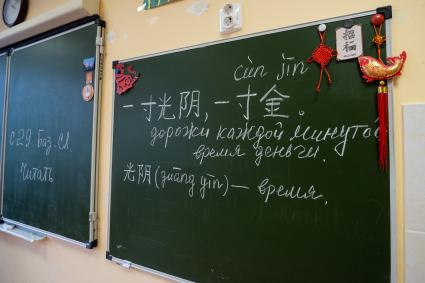 с 29 Баз. Сл.
Читать
cùn jīn
一寸光阴，一寸金。
дорожи каждой минутой
время деньги.
光阴 (guāng yīn) — время.
招福